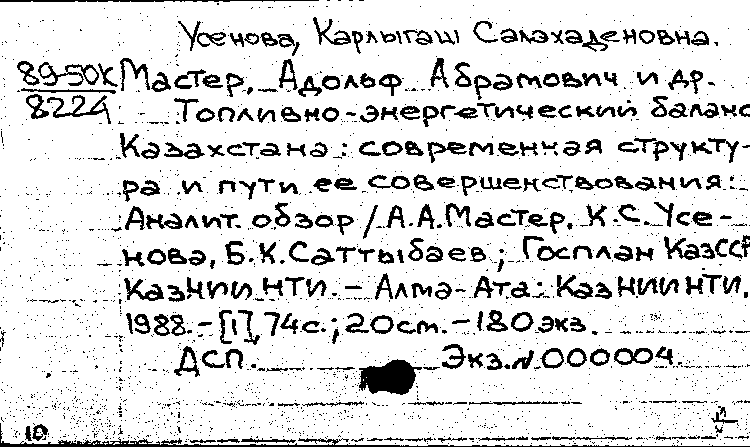 Усенова, Карлыгаш Салахаденовна.
89-50к Мастер, Адольф Абрамович и др.
8224 Топливно-энергетический баланс
Казахстана: современная структу-
ра и пути ее совершенствования:
Аналит. обзор / А.А.Мастер, К.С.Усе-
нова, Б.К.Саттыбаев; Госплан КазССР
КазНИИНТИ. - Алма-Ата: КазНИИНТИ,
1988. - [1], 74с.; 20см. - 180 экз.
ДСП. Экз.N 000004.
10